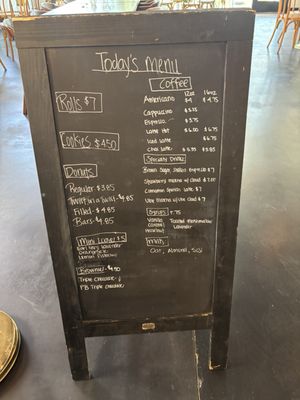 Today's Menu
Rolls $7
Cookies $4.50
Donuts
Regular $3.85
Twist in a Twist $4.85
Filled $4.85
Bars $4.85
Mini Loaves $5
Brownies $4.50
Triple Chocolate
PB Triple Chocolate
Coffee
12oz 16oz
Americano $4 $4.75
Cappuccino $5.75
Espresso $3.75
Latte Hot $6.00 $6.75
Iced Latte $6.75
Chai Latte $5.35 $5.85
Specialty Drinks
Brown Sugar Shaken Esp $7
Strawberry Matcha w/ Cloud $7.00
Cinnamon Latte $7
Ube Matcha w/ Cloud $7
Syrups $.75
Vanilla Toasted Marshmallow
Caramel Lavender
Hazelnut
Milk
Oat, Almond, Soy